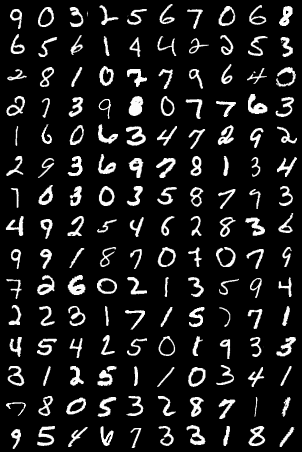 9 0 3 2 5 6 7 0 6 8
6 5 6 1 4 4 2 2 5 3
2 8 1 0 7 7 9 6 4 0
2 7 3 9 8 0 7 7 6 3
1 6 0 6 3 4 7 2 9 2
2 9 3 6 9 7 8 1 3 4
7 0 3 0 3 5 8 7 9 3
4 9 2 5 4 6 2 8 3 6
9 9 1 8 7 0 7 0 7 9
7 2 6 0 2 1 3 5 9 4
2 2 3 1 7 1 5 7 7 1
4 5 4 2 5 0 1 9 3 3
3 1 2 5 1 1 0 3 4 1
7 8 0 5 3 2 8 7 1 1
9 5 4 6 7 3 3 1 8 1